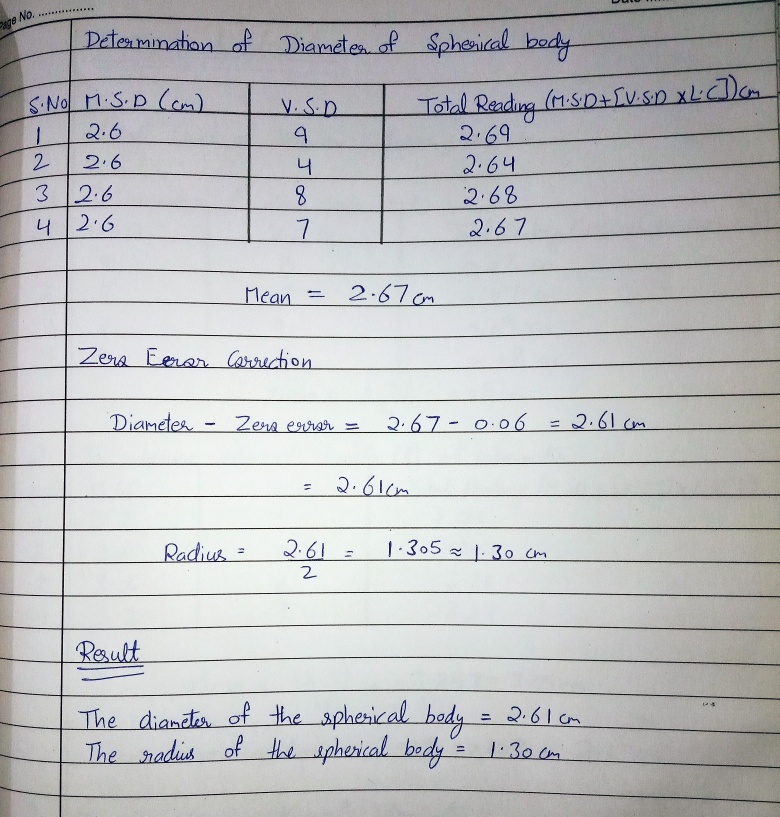 Page No. ................
Determination of Diameter of Spherical body
S.No M.S.D (cm) V.S.D Total Reading (M.S.D+[V.S.D x L.C])cm
1 2.6 9 2.69
2 2.6 4 2.64
3 2.6 8 2.68
4 2.6 7 2.67
Mean = 2.67 cm
Zero Error Correction
Diameter - Zero error = 2.67 - 0.06 = 2.61 cm
= 2.61cm
Radius = 2.61 = 1.305 ≈ 1.30 cm
2
Result
The diameter of the spherical body = 2.61 cm
The radius of the spherical body = 1.30 cm